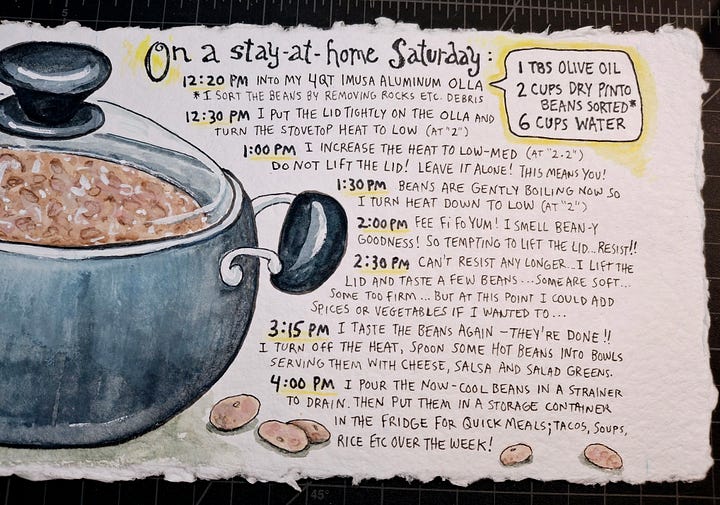 On a stay-at-home Saturday:
12:20 PM INTO MY 4QT IMUSA ALUMINUM OLLA
* I SORT THE BEANS BY REMOVING ROCKS ETC. DEBRIS
1 TBS OLIVE OIL
2 CUPS DRY PINTO
BEANS SORTED*
6 CUPS WATER
12:30 PM I PUT THE LID TIGHTLY ON THE OLLA AND
TURN THE STOVETOP HEAT TO LOW (AT "2")
1:00 PM I INCREASE THE HEAT TO LOW-MED (AT "2.2")
DO NOT LIFT THE LID! LEAVE IT ALONE! THIS MEANS YOU!
1:30 PM BEANS ARE GENTLY BOILING NOW SO
I TURN HEAT DOWN TO LOW (AT "2")
2:00 PM FEE FI FO YUM! I SMELL BEAN-Y
GOODNESS! SO TEMPTING TO LIFT THE LID...RESIST!!
2:30 PM CAN'T RESIST ANY LONGER...I LIFT THE
LID AND TASTE A FEW BEANS...SOME ARE SOFT...
SOME TOO FIRM...BUT AT THIS POINT I COULD ADD
SPICES OR VEGETABLES IF I WANTED TO...
3:15 PM I TASTE THE BEANS AGAIN - THEY'RE DONE!!
I TURN OFF THE HEAT, SPOON SOME HOT BEANS INTO BOWLS
SERVING THEM WITH CHEESE, SALSA AND SALAD GREENS.
4:00 PM I POUR THE NOW-COOL BEANS IN A STRAINER
TO DRAIN. THEN PUT THEM IN A STORAGE CONTAINER
IN THE FRIDGE FOR QUICK MEALS; TACOS, SOUPS,
RICE ETC OVER THE WEEK!
45°